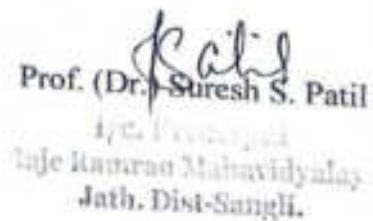 Patil
Prof. (Dr.) Suresh S. Patil
I/c. Principal
Raje Ramrao Mahavidyalay
Jath. Dist-Sangli.